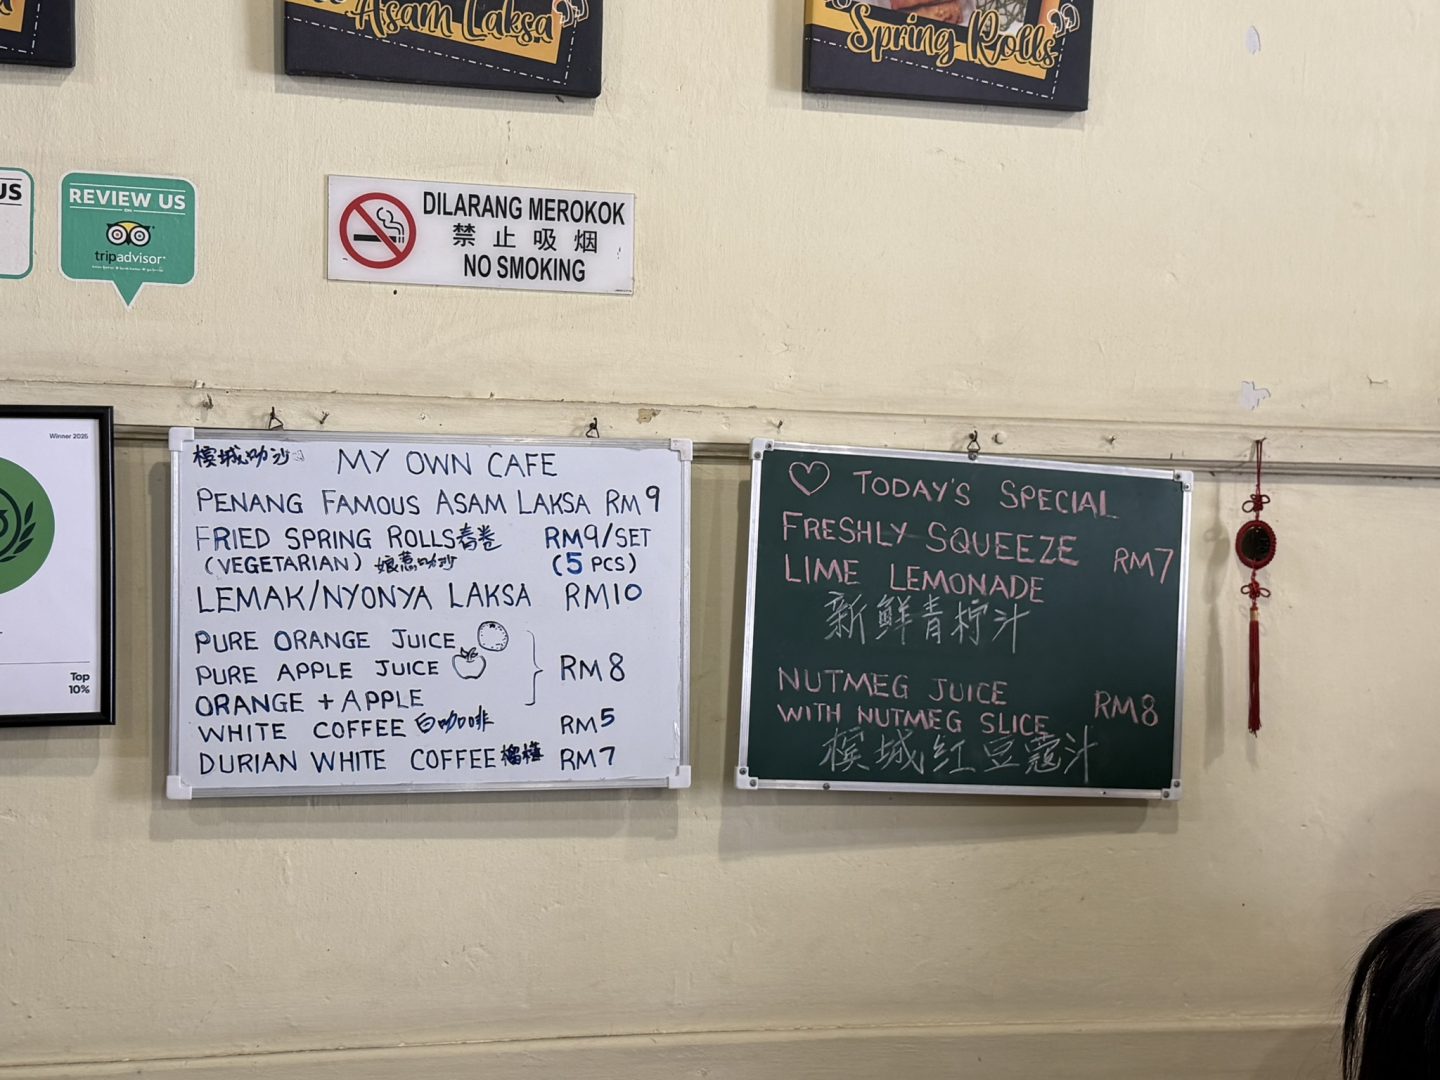 Asam Laksa”
Spring Rolls”
US
REVIEW US
ON
tripadvisor
DILARANG MEROKOK
禁止吸烟
NO SMOKING
Winner 2025
Top
10%
槟城叻沙 MY OWN CAFE
PENANG FAMOUS ASAM LAKSA RM9
FRIED SPRING ROLLS春卷 RM9/SET
(VEGETARIAN) 娘惹叻沙 (5 PCS)
LEMAK/NYONYA LAKSA RM10
PURE ORANGE JUICE
PURE APPLE JUICE RM8
ORANGE + APPLE
WHITE COFFEE 白咖啡 RM5
DURIAN WHITE COFFEE榴梿 RM7
TODAY'S SPECIAL
FRESHLY SQUEEZE RM7
LIME LEMONADE
新鲜青柠汁
NUTMEG JUICE RM8
WITH NUTMEG SLICE
槟城红豆蔻汁